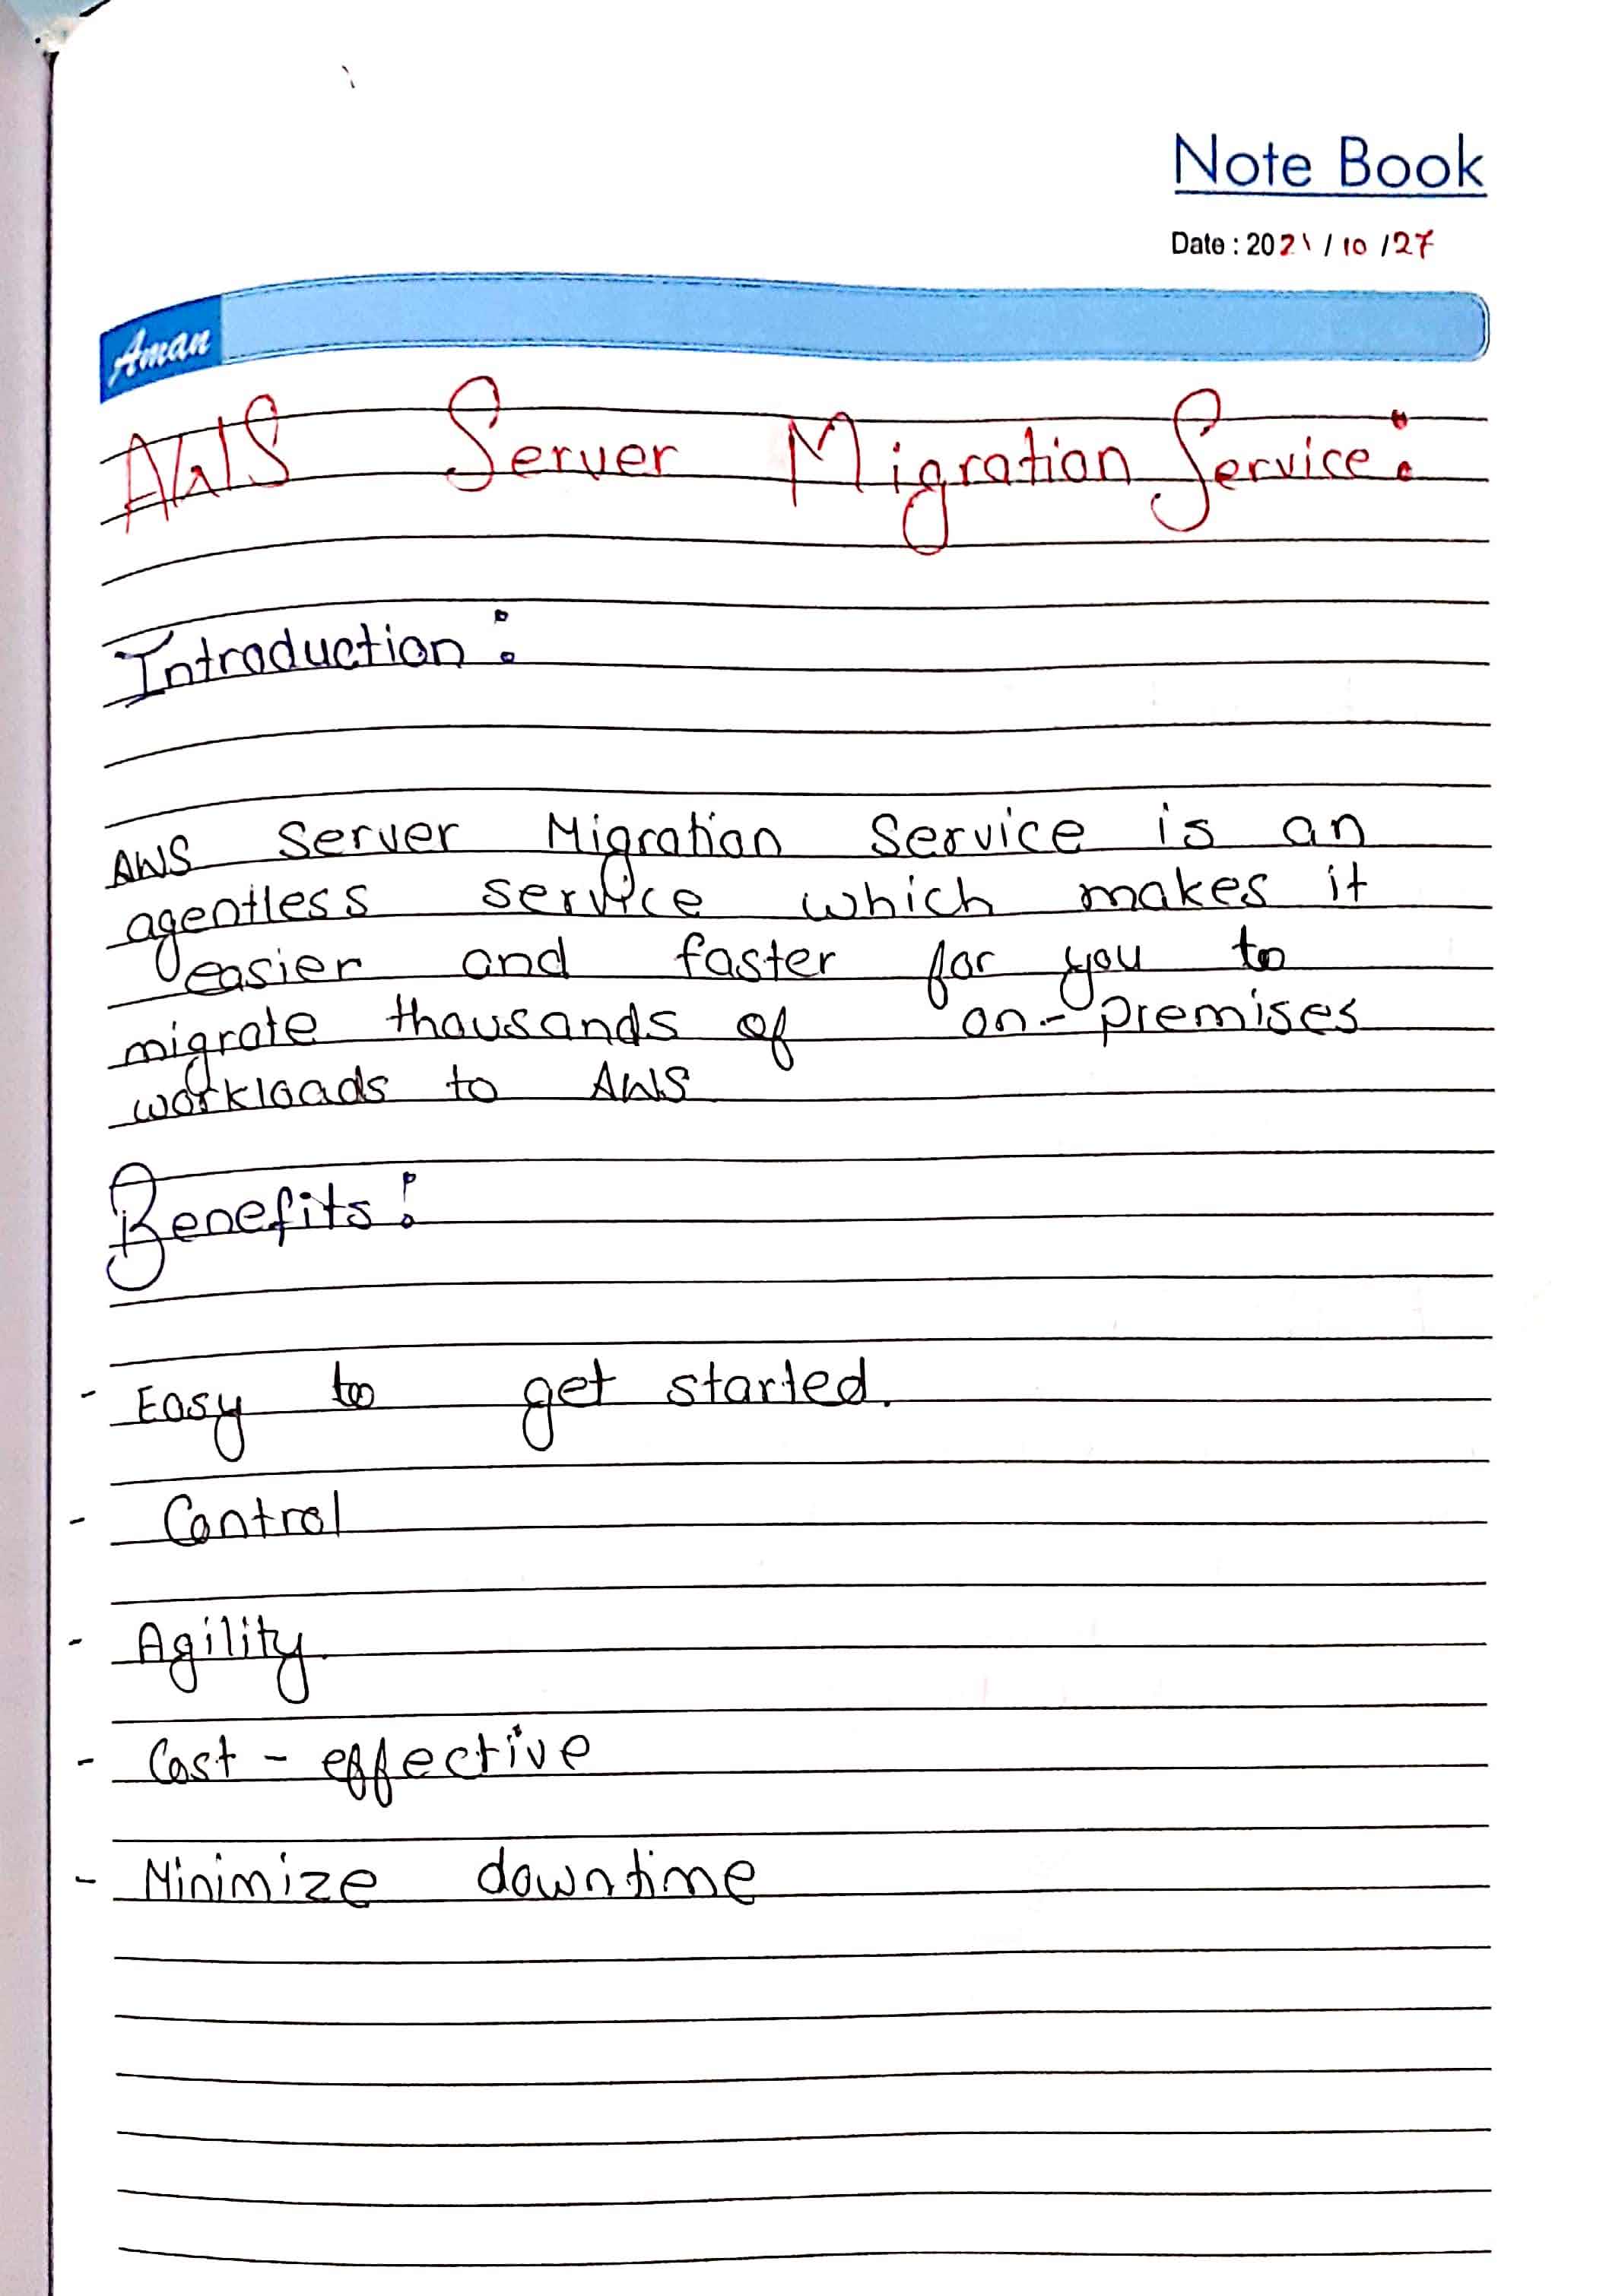 Note Book
Date : 2021 / 10 / 27
Aman
AWS Server Migration Service:
Introduction:
AWS Server Migration Service is an
agentless service which makes it
easier and faster for you to
migrate thousands of on-premises
workloads to AWS
Benefits:
- Easy to get started.
- Control
- Agility.
- Cost-effective
- Minimize downtime